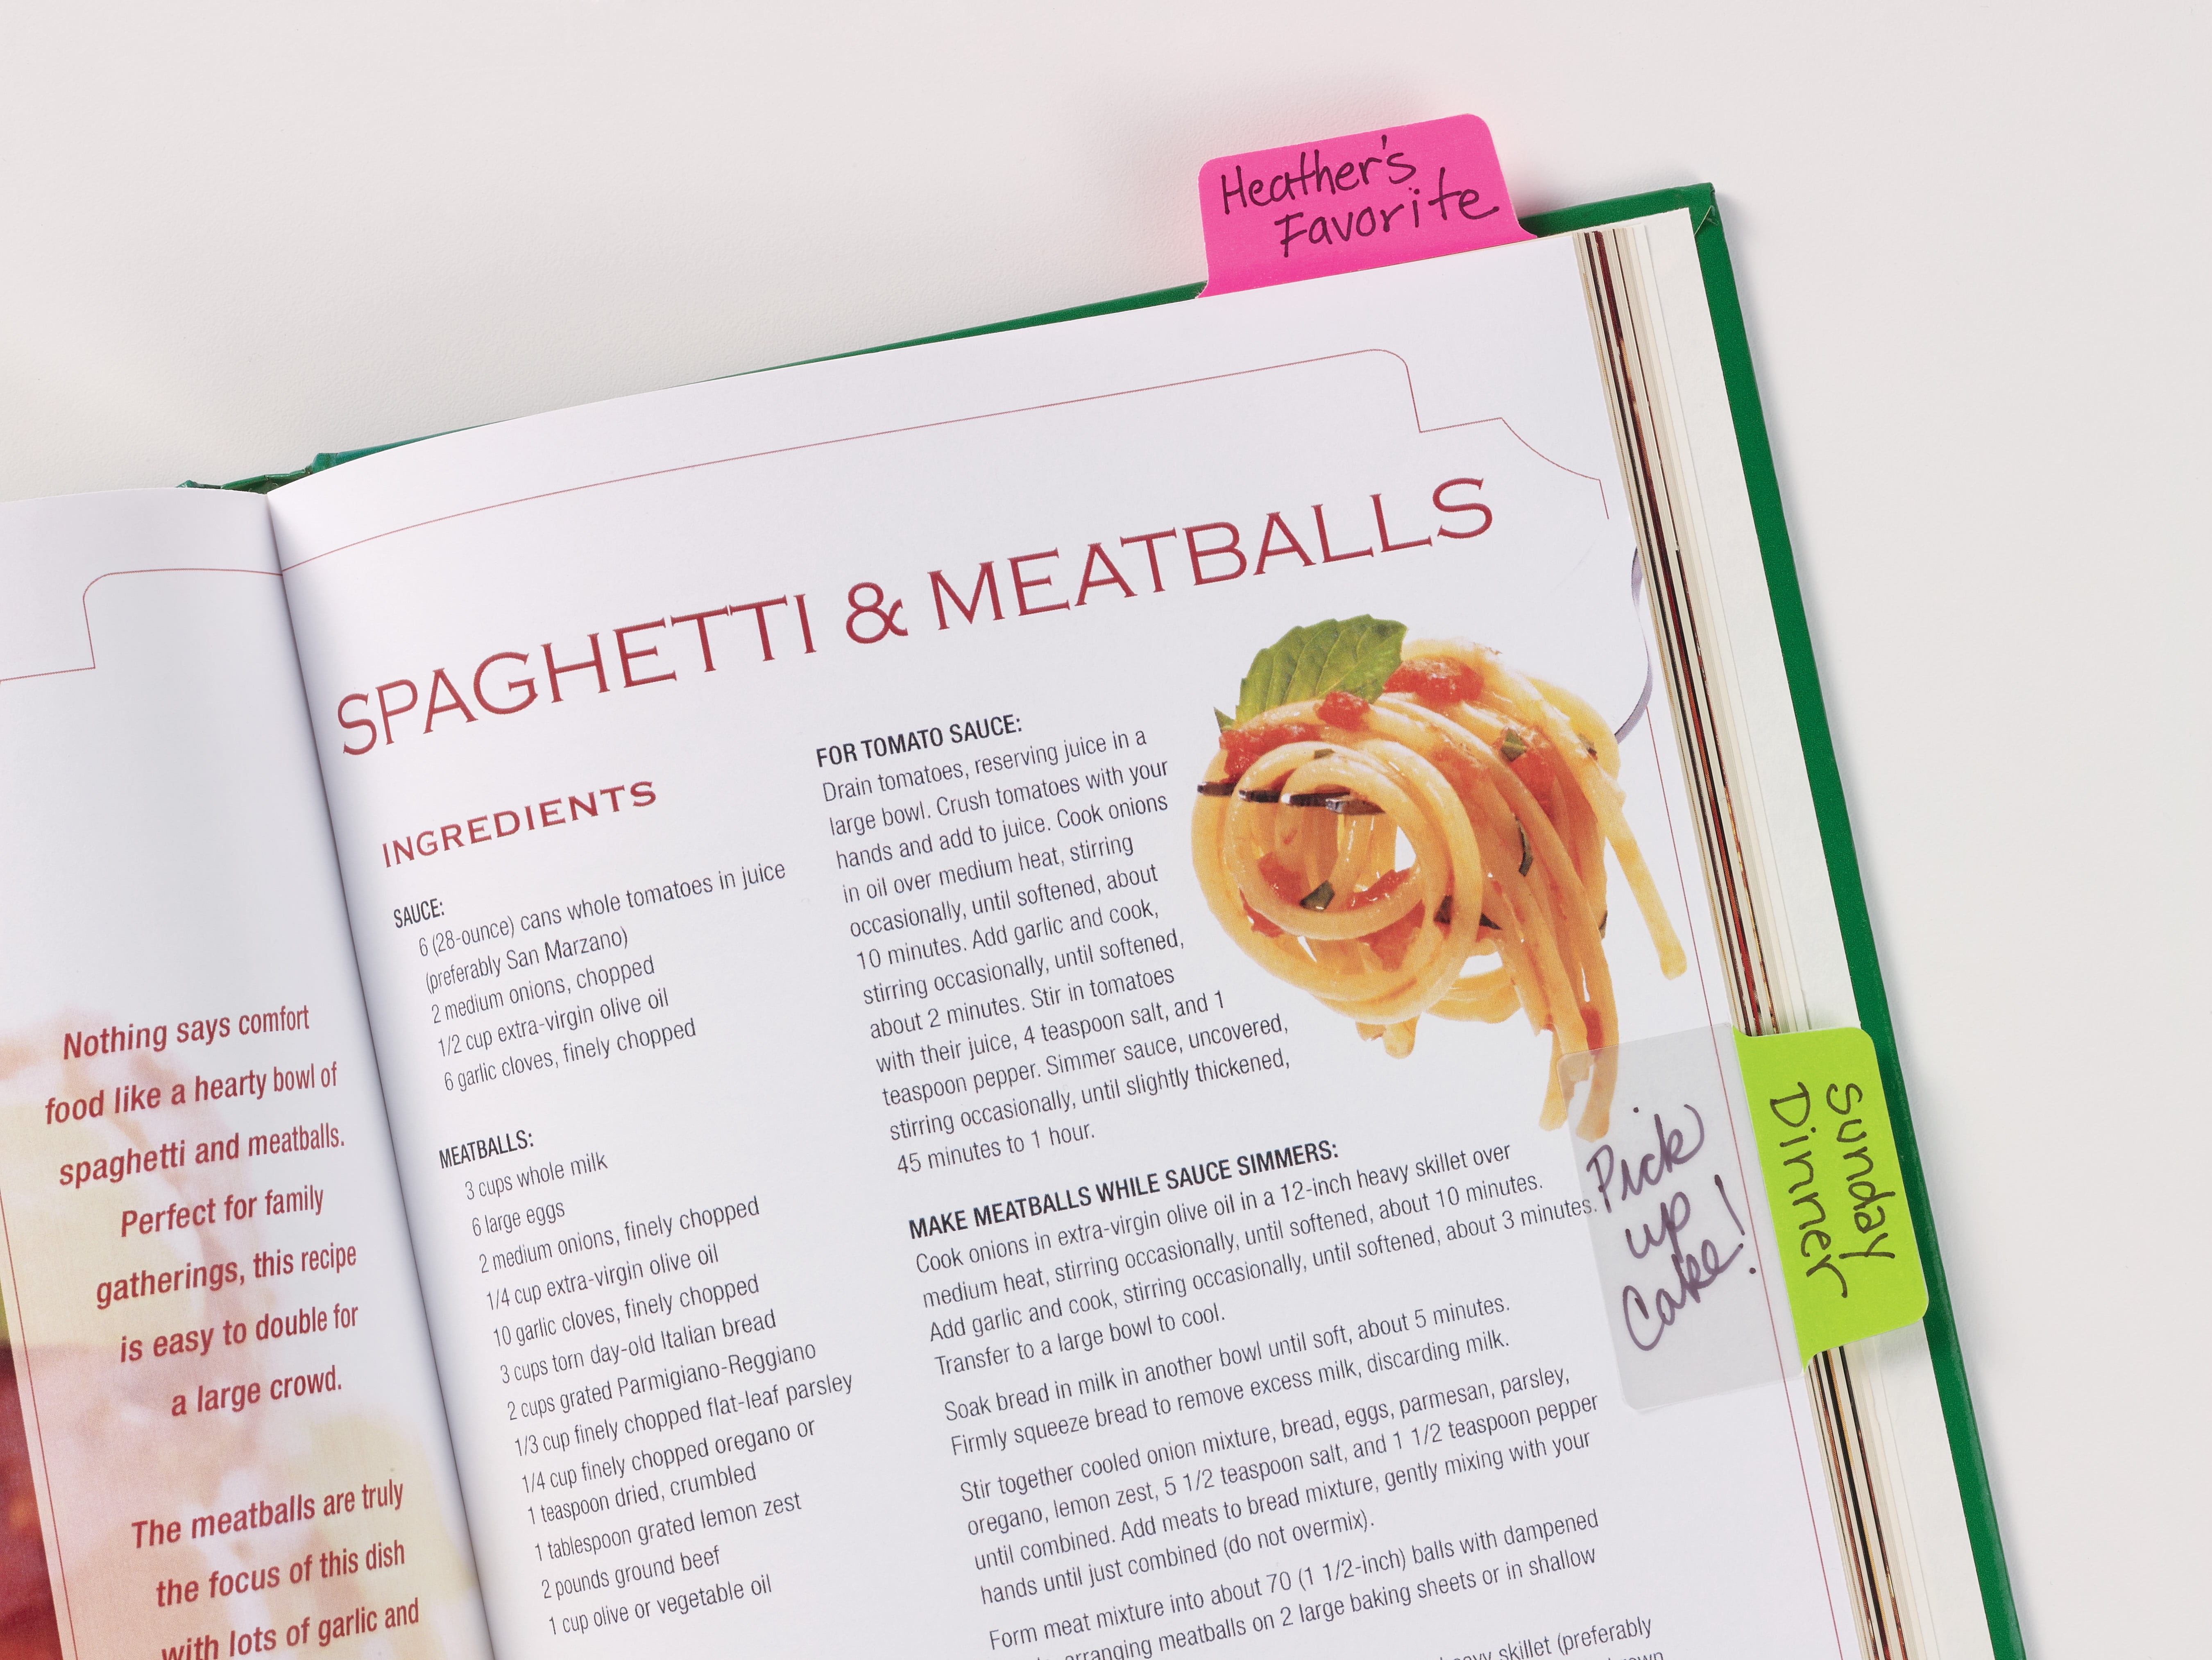 Heather's
Favorite
Nothing says comfort
food like a hearty bowl of
spaghetti and meatballs.
Perfect for family
gatherings, this recipe
is easy to double for
a large crowd.
The meatballs are truly
the focus of this dish
with lots of garlic and
SPAGHETTI & MEATBALLS
INGREDIENTS
SAUCE:
6 (28-ounce) cans whole tomatoes in juice
(preferably San Marzano)
2 medium onions, chopped
1/2 cup extra-virgin olive oil
6 garlic cloves, finely chopped
MEATBALLS:
3 cups whole milk
6 large eggs
2 medium onions, finely chopped
1/4 cup extra-virgin olive oil
10 garlic cloves, finely chopped
3 cups torn day-old Italian bread
2 cups grated Parmigiano-Reggiano
1/3 cup finely chopped flat-leaf parsley
1/4 cup finely chopped oregano or
1 teaspoon dried, crumbled
1 tablespoon grated lemon zest
2 pounds ground beef
1 cup olive or vegetable oil
FOR TOMATO SAUCE:
Drain tomatoes, reserving juice in a
large bowl. Crush tomatoes with your
hands and add to juice. Cook onions
in oil over medium heat, stirring
occasionally, until softened, about
10 minutes. Add garlic and cook,
stirring occasionally, until softened,
about 2 minutes. Stir in tomatoes
with their juice, 4 teaspoon salt, and 1
teaspoon pepper. Simmer sauce, uncovered,
stirring occasionally, until slightly thickened,
45 minutes to 1 hour.
MAKE MEATBALLS WHILE SAUCE SIMMERS:
Cook onions in extra-virgin olive oil in a 12-inch heavy skillet over
medium heat, stirring occasionally, until softened, about 10 minutes.
Add garlic and cook, stirring occasionally, until softened, about 3 minutes.
Transfer to a large bowl to cool.
Soak bread in milk in another bowl until soft, about 5 minutes.
Firmly squeeze bread to remove excess milk, discarding milk.
Stir together cooled onion mixture, bread, eggs, parmesan, parsley,
oregano, lemon zest, 5 1/2 teaspoon salt, and 1 1/2 teaspoon pepper
until combined. Add meats to bread mixture, gently mixing with your
hands until just combined (do not overmix).
Form meat mixture into about 70 (1 1/2-inch) balls with dampened
arranging meatballs on 2 large baking sheets or in shallow
skillet (preferably
Pick
up
Cake!
Sunday
Dinner